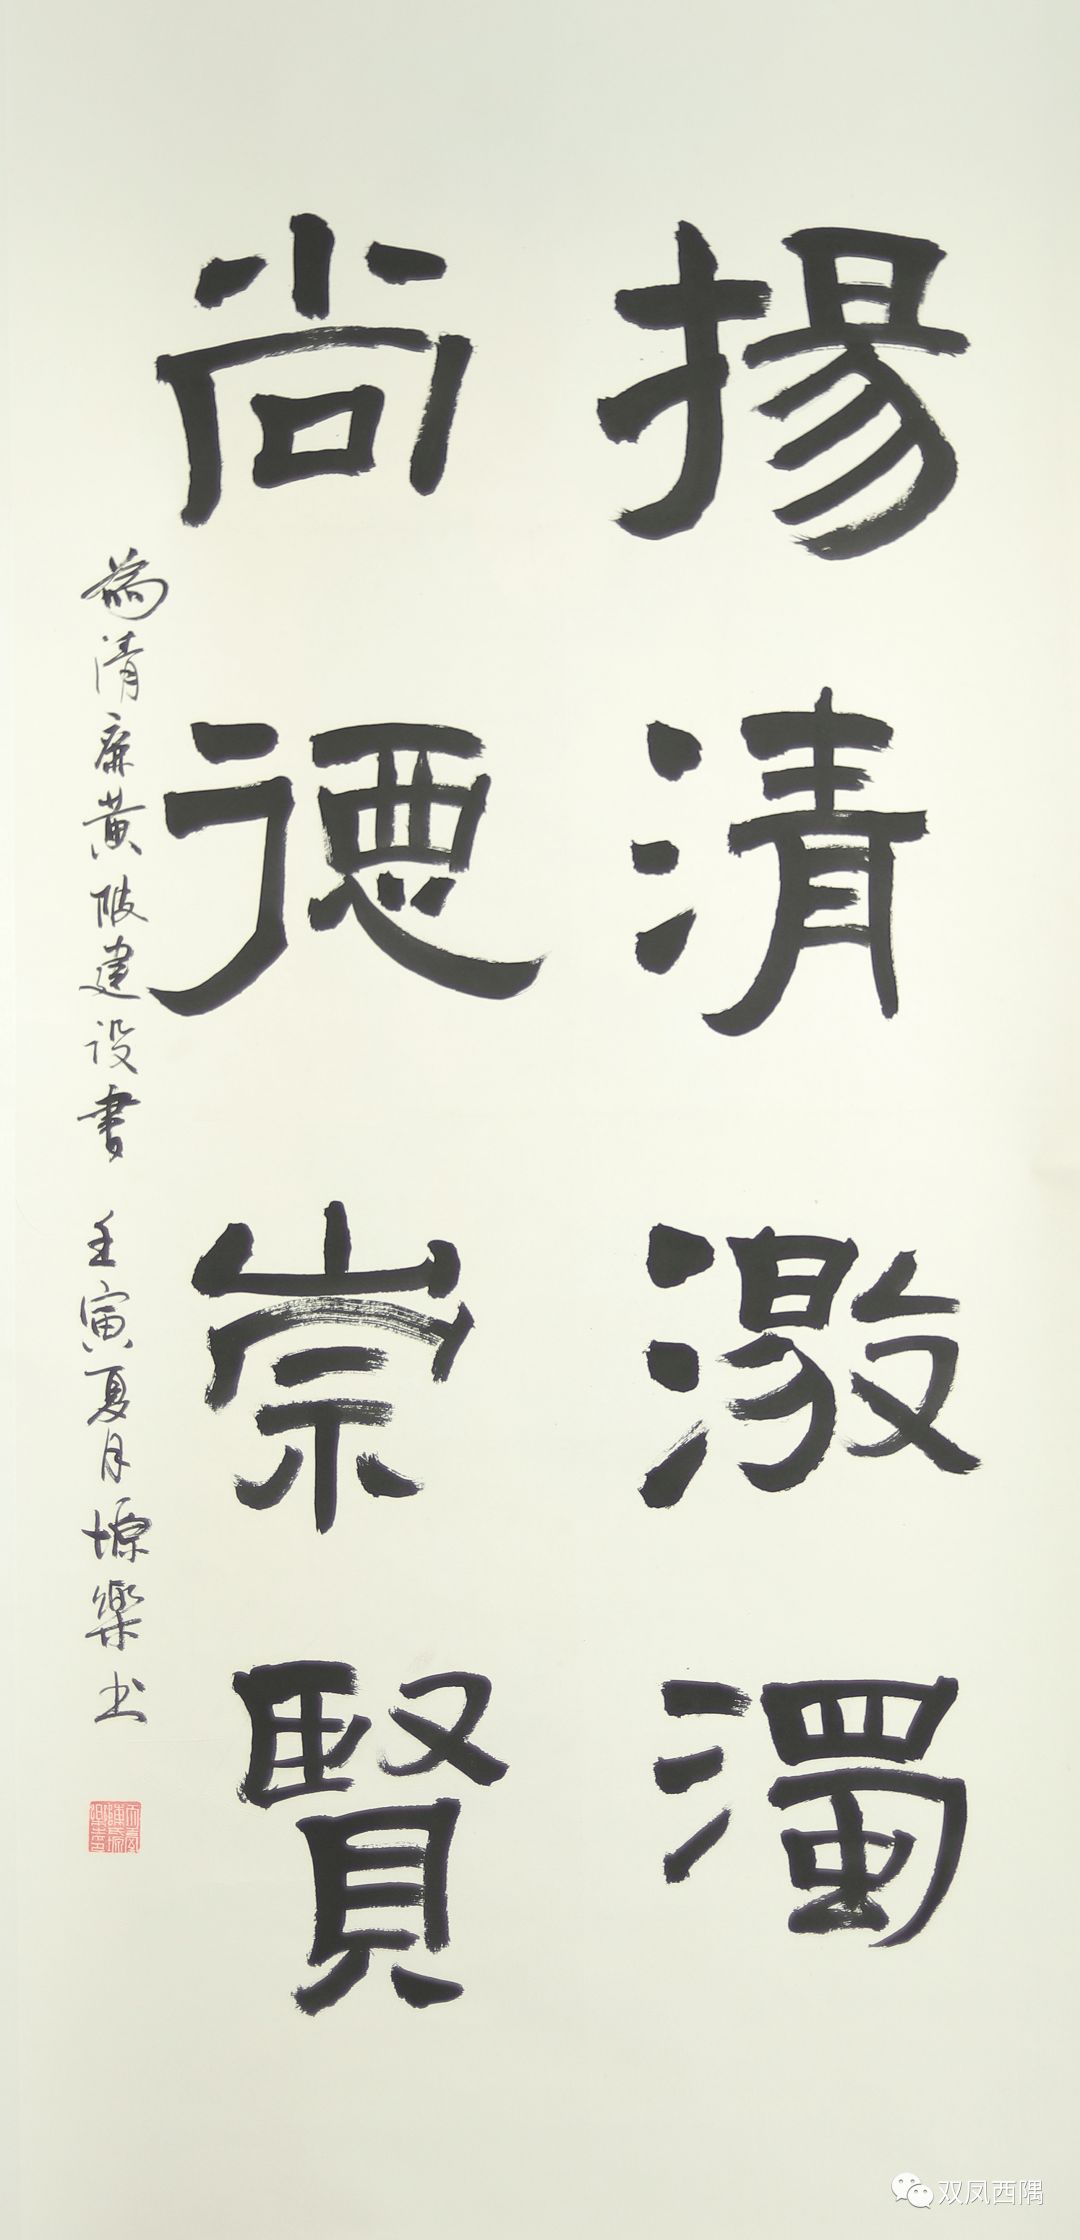 揚清激濁
尚德崇賢
為清廉黄陂建设書 壬寅夏月塬樂书
双凤西隅